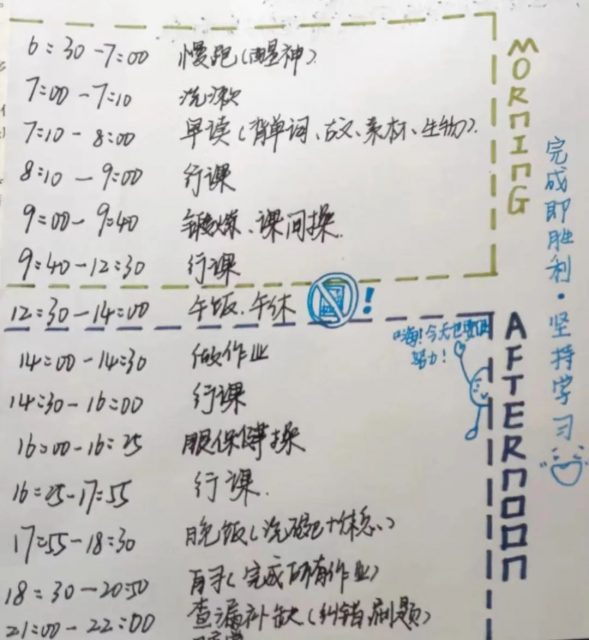 6:30-7:00 慢跑(醒神)
7:00-7:10 洗漱
7:10-8:00 早读(背单词、古文、素材、生物).
8:10-9:00 行课
9:00-9:40 锻炼、课间操.
9:40-12:30 行课
MORNING
12:30-14:00 午饭.午休 !
14:00-14:30 做作业
14:30-16:00 行课
16:00-16:25 眼保健操
16:25-17:55 行课.
17:55-18:30 晚饭(洗碗+休息)
18:30-20:50 自习(完成所有作业)
21:00-22:00 查漏补缺(纠错.刷题)
AFTERNOON
嗨!今天也要
努力!
完成即胜利·坚持学习